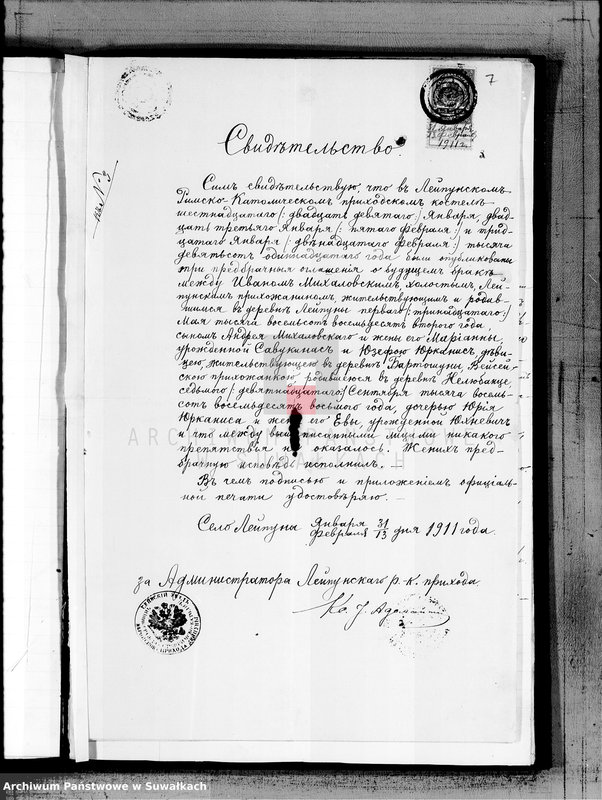 7
31 Января
13 Февраля
1911 г.
къ № 3
Свидѣтельство.
Симъ свидѣтельствую, что въ Лейпунскомъ
Римско-Католическомъ приходскомъ костелѣ
шестнадцатаго (: двадцать девятаго :) Января, двад-
цать третьяго Января (: пятаго Февраля :) и трид-
цатаго Января (: двѣнадцатаго Февраля :) тысяча
девятьсотъ одиннадцатаго года были опубликованы
три предбрачныя оглашенія о будущемъ бракѣ
между Иваномъ Михаловскимъ, холостымъ, Лей-
пунскимъ прихожаниномъ, жительствующимъ и родив-
шимся въ деревнѣ Лейпуны перваго (: тринадцатаго :)
Мая тысяча восемьсотъ восемьдесятъ второго года,
сыномъ Андрея Михаловскаго и жены его Маріанны,
урожденной Савукинасъ и Юзефою Юрканисъ, дѣви-
цею, жительствующею въ деревнѣ Бартошуны, Вейсей-
скою прихожанкою, родившеюся въ деревнѣ Нелюбанце
седьмого (: девятнадцатаго :) Сентября тысяча восемь-
сотъ восемьдесятъ восьмого года, дочерью Юрія
Юрканиса и жены его Евы, урожденной Юхневичъ
и что между выше писанными лицами никакого
препятствія не оказалось. Женихъ пред-
брачную исповѣдь исполнилъ.
Въ чемъ подписью и приложеніемъ офиціаль-
ной печати удостовѣряю. —
Село Лейпуны Января 31 / Февраля 13 дня 1911 года.
за Администратора Лейпунскаго р.-к. прихода.
Кс. J.
ARCHIWUM PAŃSTWOWE
W SUWAŁKACH
Archiwum Państwowe w Suwałkach